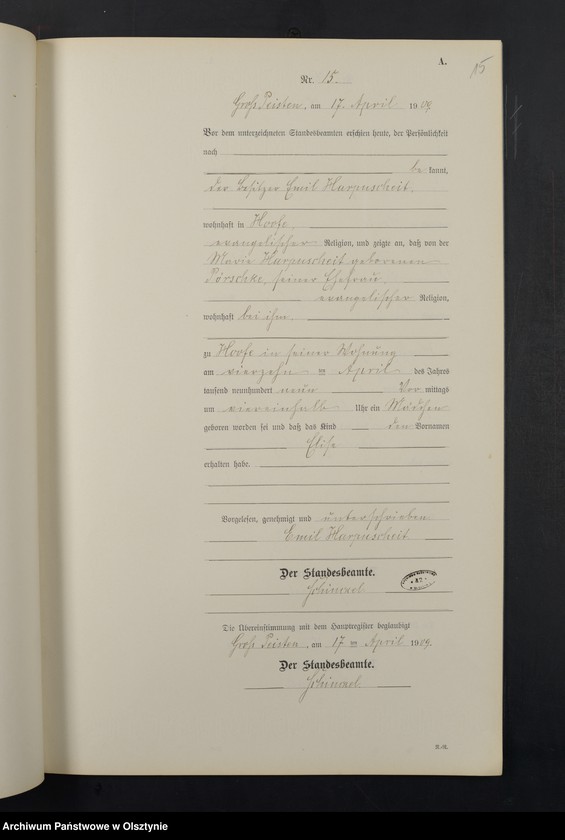 A.
15
Nr. 15.
Groß Peisten, am 17. April 1909.
Vor dem unterzeichneten Standesbeamten erschien heute, der Persönlichkeit
nach
be kannt,
der Besitzer Emil Harpuscheit,
wohnhaft in Hoofe,
evangelischer Religion, und zeigte an, daß von der
Marie Harpuscheit geborenen
Pörschke, seiner Ehefrau,
evangelischer Religion,
wohnhaft bei ihm,
zu Hoofe in seiner Wohnung
am vierzehn ten April des Jahres
tausend neunhundert neun Vor mittags
um viereinhalb Uhr ein Mädchen
geboren worden sei und daß das Kind den Vornamen
Elise
erhalten habe.
Vorgelesen, genehmigt und unterschrieben
Emil Harpuscheit
Der Standesbeamte.
Die Übereinstimmung mit dem Hauptregister beglaubigt
Groß Peisten, am 17 ten April 1909.
Der Standesbeamte.
Archiwum Państwowe w Olsztynie